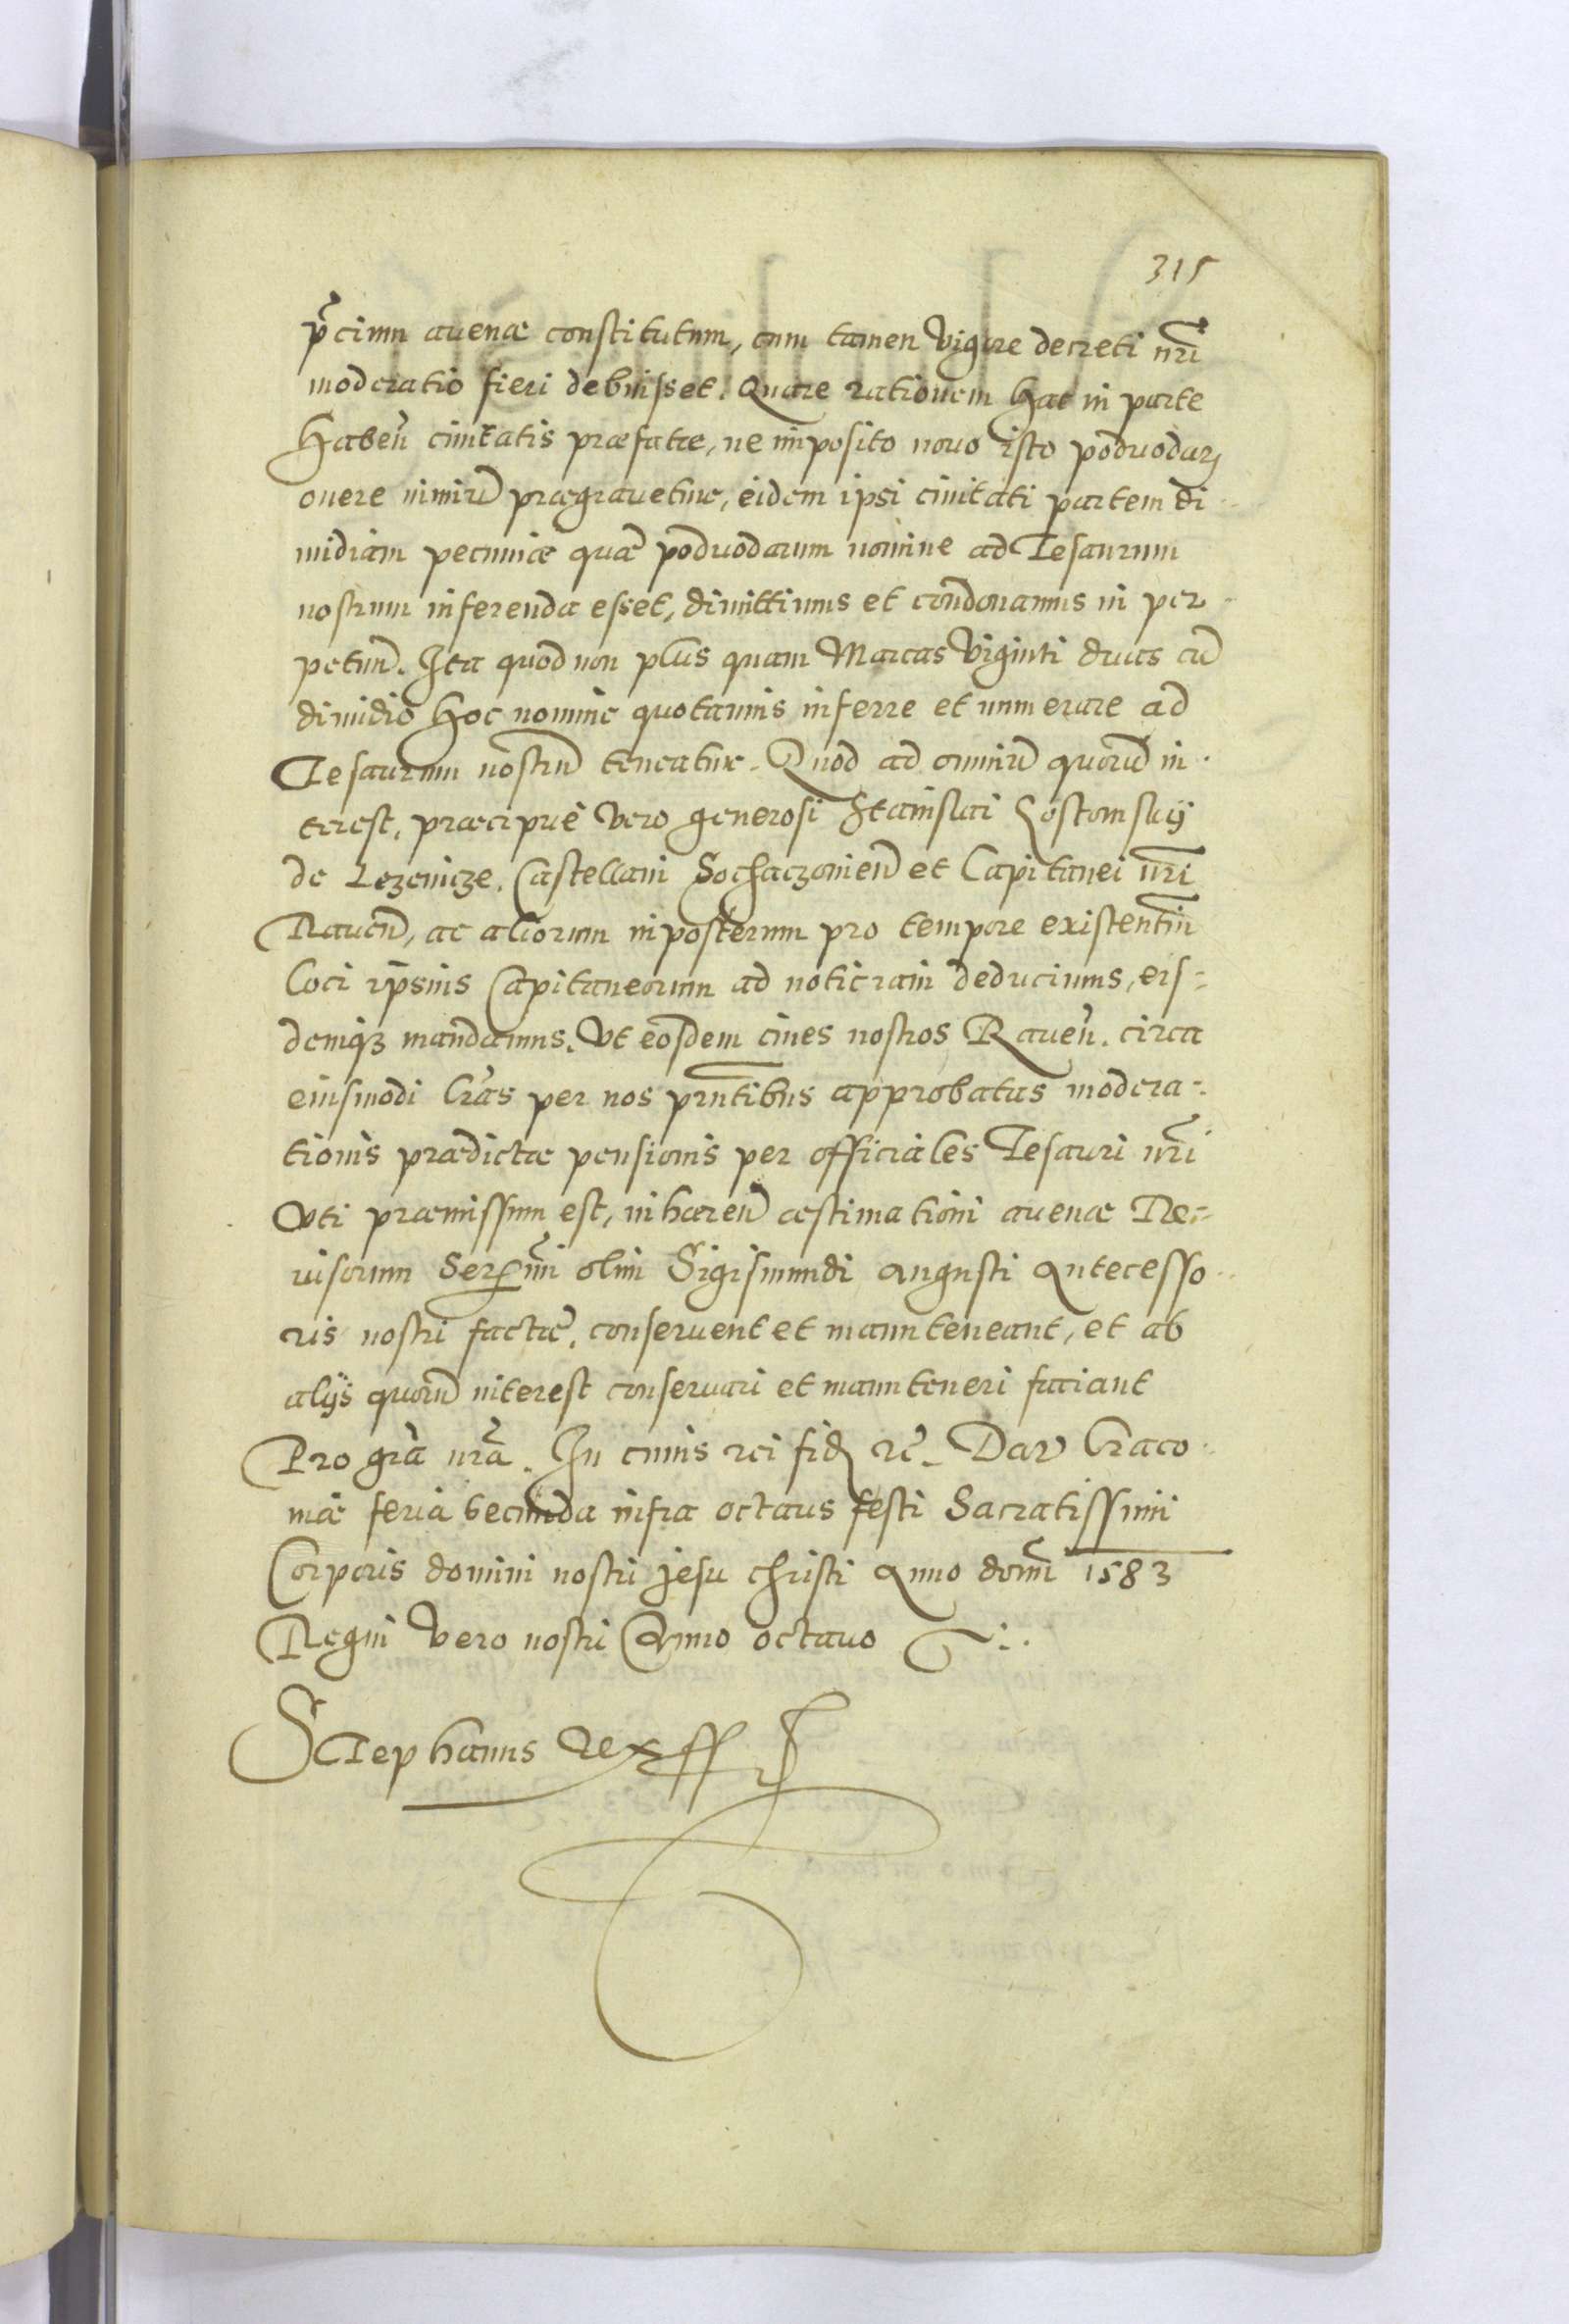 315
p̃cium auenæ constitutum, cum tamen vigore decreti nr̃i
moderatio fieri debuisset. Quare rationem hac in parte
haben̄ ciuitatis præfatæ, ne imposito nouo isto podvodarȝ
onere nimiū prægrauetur, eidem ipsi ciuitati partem di
midiam pecuniæ quæ podvodarum nomine ad Tesaurum
nostrum inferenda esset, dimittimus et condonamus in per
petuū. Ita quod non plus quam Marcas viginti duas cū
dimidio hoc nomine quotannis inferre et numerare ad
Tesaurum nostrū teneatur. Quod ad omniū quorū in
terest, præcipuè vero generosi Stanislai Gostomskij
de Lezenicze, Castellani Sochaczouien̄ et Capitanei nr̃i
Rauen̄, ac aliorum in posterum pro tempore existentiū
loci ipsius Capitaneorum ad noticiam deducimus, eis-
demqȝ mandamus, Vt eosdem ciues nostros Rauen̄. circa
eiusmodi lr̃as per nos pr̃ntibus approbatas modera-
tionis prædictæ pensionis per officiales Tesauri nr̃i
Vti præmissum est, inhæren̄ æstimationi auenæ Re-
uisorum Serᵐⁱ olim Sigismundi Augusti Antecesso
ris nostri factæ, conseruent et manuteneant, et ab
alijs quorū interest conseruari et manuteneri faciant
Pro gr̃a nr̃a. In cuius rei fidȝ rc̃. Dat Craco
uiæ feria secunda infra octauas festi Sacratissimi
Corporis domini nostri Jesu christi Anno domⁱ 1583
Regni vero nostri Anno octauo
Stephanus Rex ssᵗ